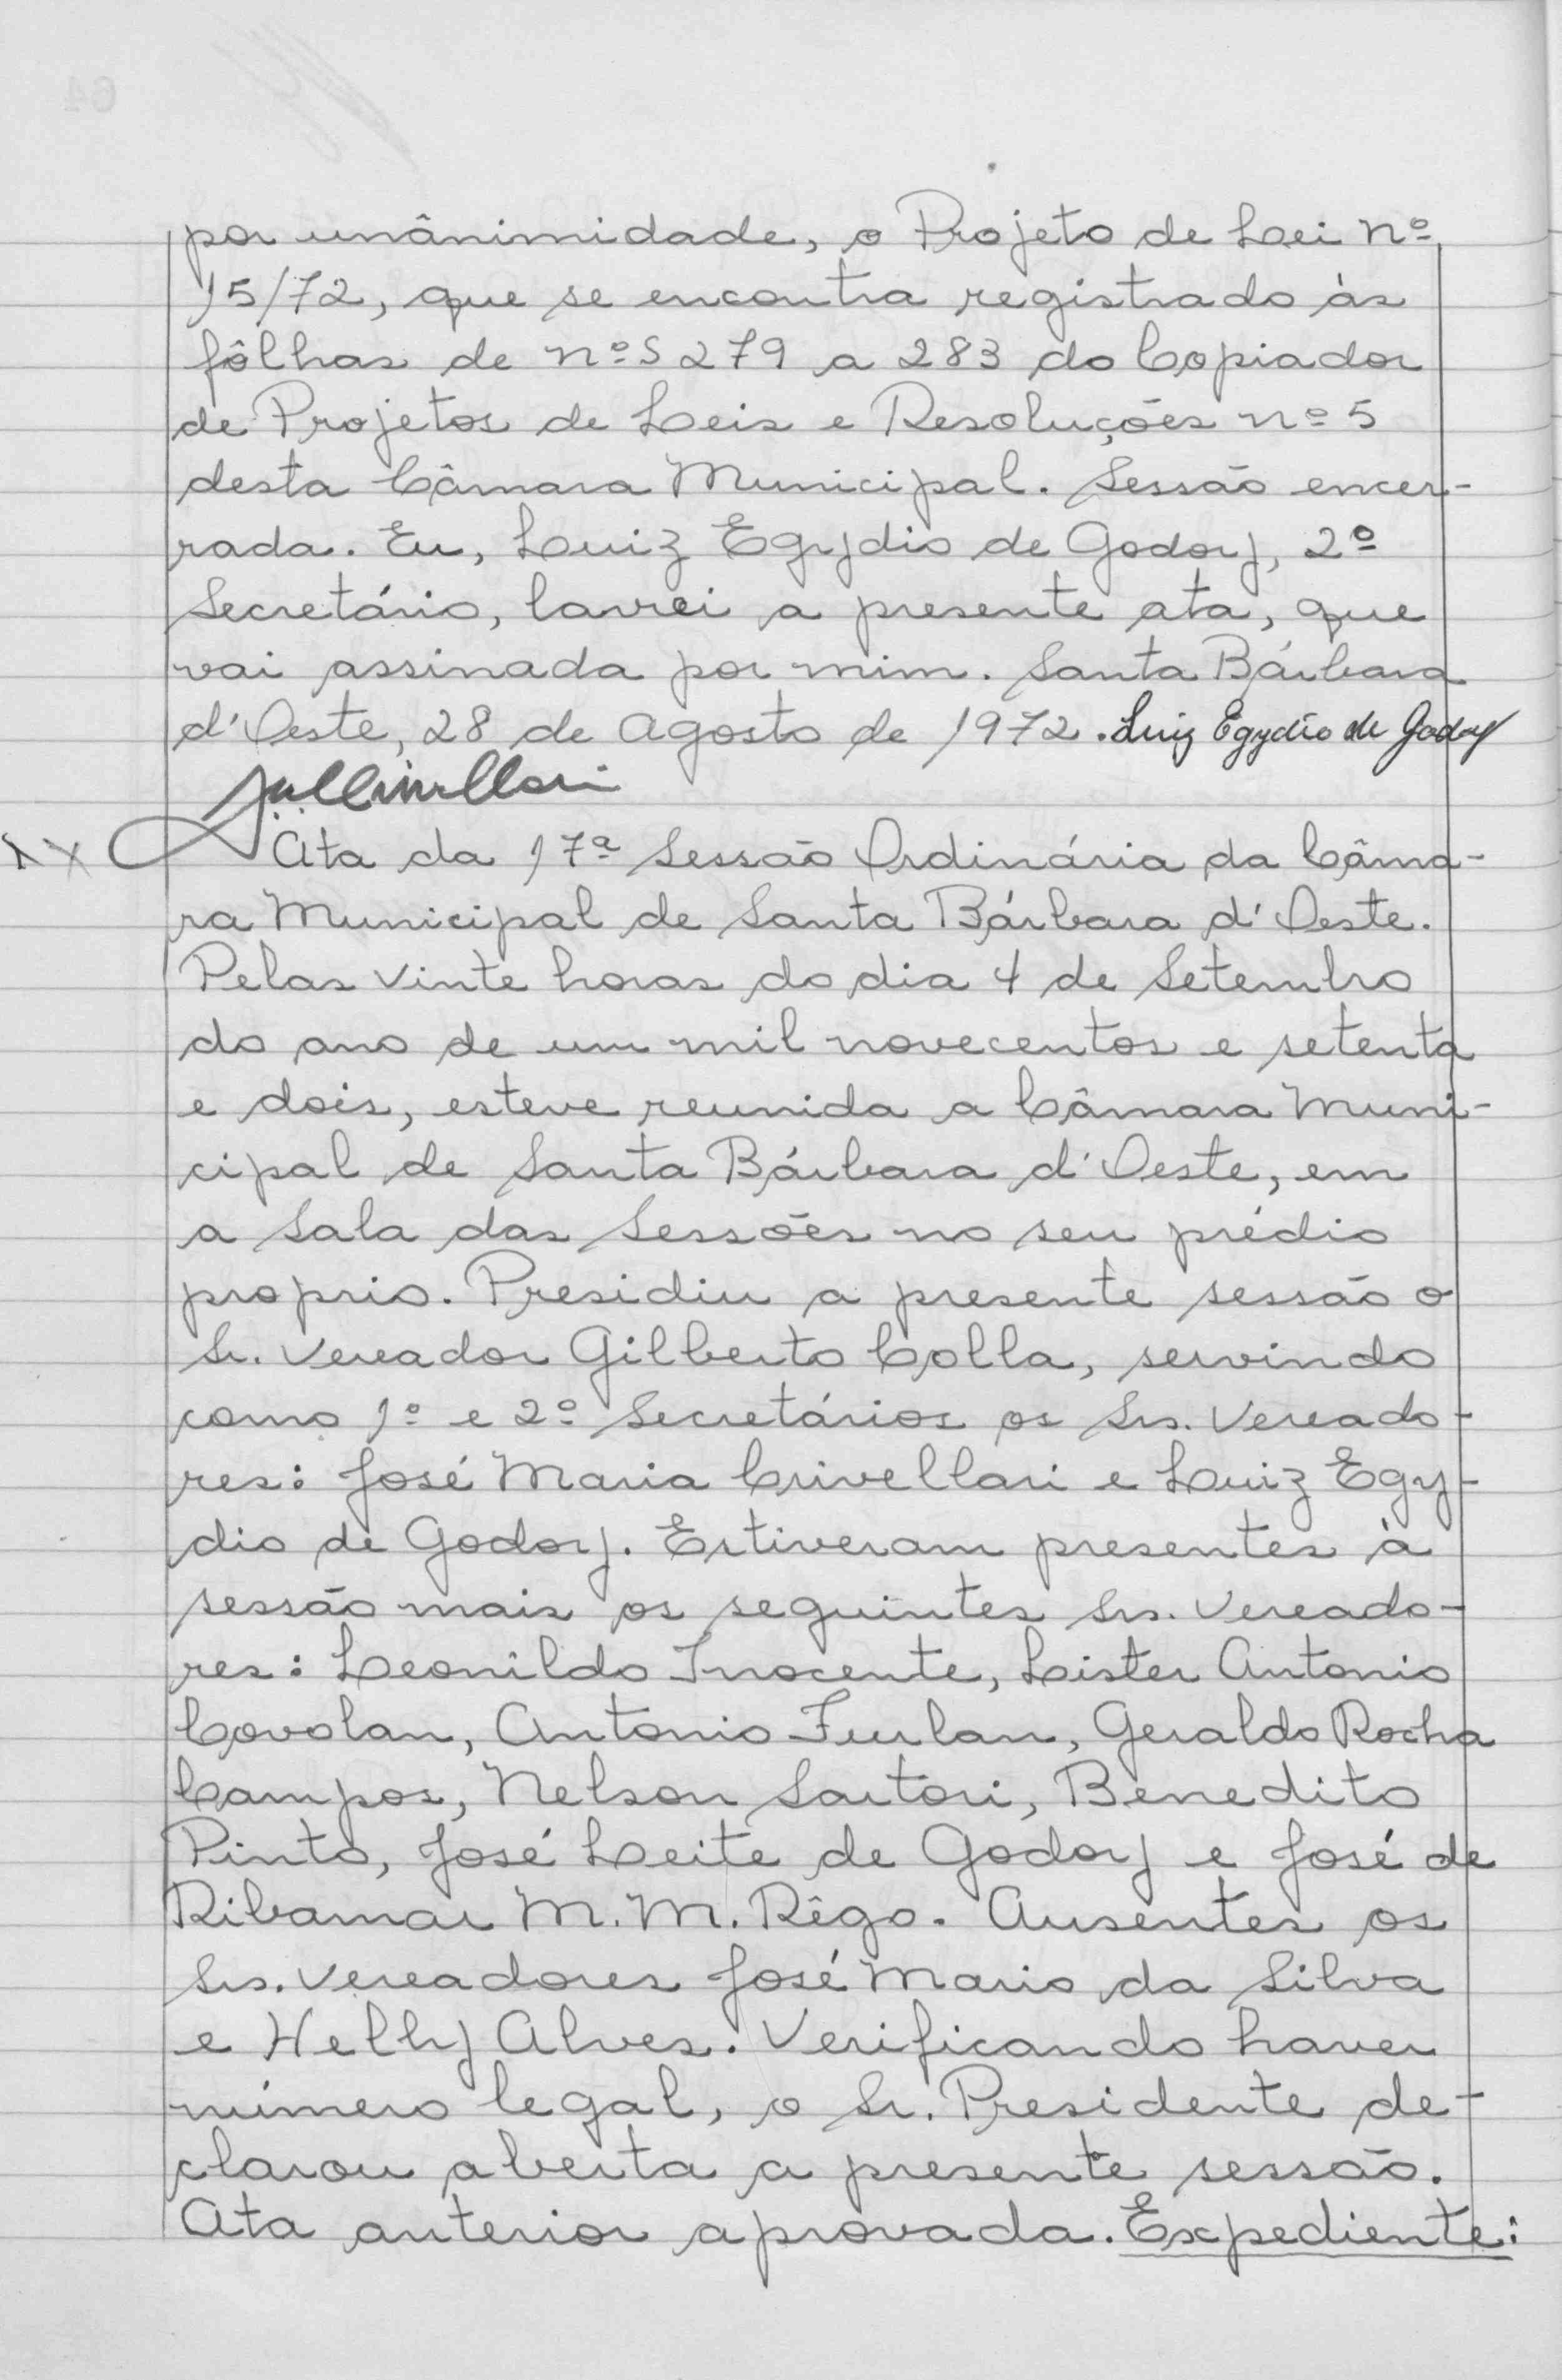 por unânimidade, o Projeto de Lei nº
15/72, que se encontra registrado às
fôlhas de nºs 279 a 283 do Copiador
de Projetos de Leis e Resoluções nº 5
desta Câmara Municipal. Sessão encer-
rada. Eu, Luiz Egydio de Godoy, 2º
Secretário, lavrei a presente ata, que
vai assinada por mim. Santa Bárbara
d'Oeste, 28 de Agosto de 1972. Luiz Egydio de Godoy
Ata da 17ª Sessão Ordinária da Câma-
ra Municipal de Santa Bárbara d'Oeste.
Pelas vinte horas do dia 4 de Setembro
do ano de um mil novecentos e setenta
e dois, esteve reunida a Câmara Muni-
cipal de Santa Bárbara d'Oeste, em
a Sala das Sessões no seu prédio
proprio. Presidiu a presente sessão o
Sr. Vereador Gilberto Colla, servindo
como 1º e 2º Secretários os Srs. Vereado-
res: José Maria Crivellari e Luiz Egy-
dio de Godoy. Estiveram presentes à
sessão mais os seguintes Srs. Vereado-
res: Leonildo Inocente, Lister Antonio
Covolan, Antonio Furlan, Geraldo Rocha
Campos, Nelson Sartori, Benedito
Pinto, José Leite de Godoy e José de
Ribamar M. M. Rêgo. Ausentes os
Srs. Vereadores José Mario da Silva
e Helly Alves. Verificando haver
número legal, o Sr. Presidente de-
clarou aberta a presente sessão.
Ata anterior aprovada. Expediente: